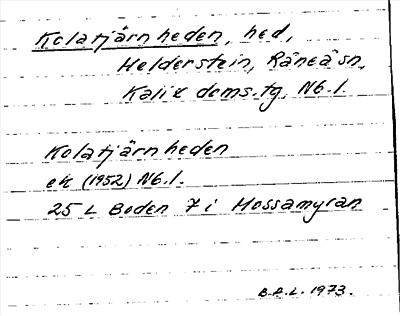 Kolatjärnheden, hed,
Helderstein, Råneå sn,
Kalix doms.tg. Nb.l.
Kolatjärnheden
ek (1952) Nb.l.
25 L Boden 7 i Mossamyran
B.A.L. 1973.